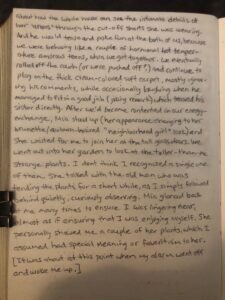 about how the whole world can see the intimate details of
her "ass" through the cut-off shorts she was wearing.
And he would tease and poke fun at the both of us because
we were behaving like a couple of hormonal hot temper-
ature amorous teens, when we get together. We eventually
rolled off the couch (or were pushed off?) and continue to
play on the thick cream-colored soft carpet, mostly ignor-
ing his comments, while occasionally laughing when he
managed to fit in a good jab / poke
sister directly. After we'd become contented in our energy-
exchange, Mia stood up (her appearance changing to her
brunette/ "neighborhood girl" look) and
she waited for me to join her at the tall glass doors. We
went out into her gardens to look at the taller-than-me
strange plants. I don't think I recognized a single one
of them. She talked with the old man who was
tending the plants for a short while, as I simply followed
behind quietly, curiously observing. Mia glanced back
at me many times to ensure I was lingering near,
almost as if ensuring that I was enjoying myself. She
personally showed me a couple of her plants, which I
assumed had special meaning or favoritism to her.
[It was about at this point when my alarm went off
and woke me up.]